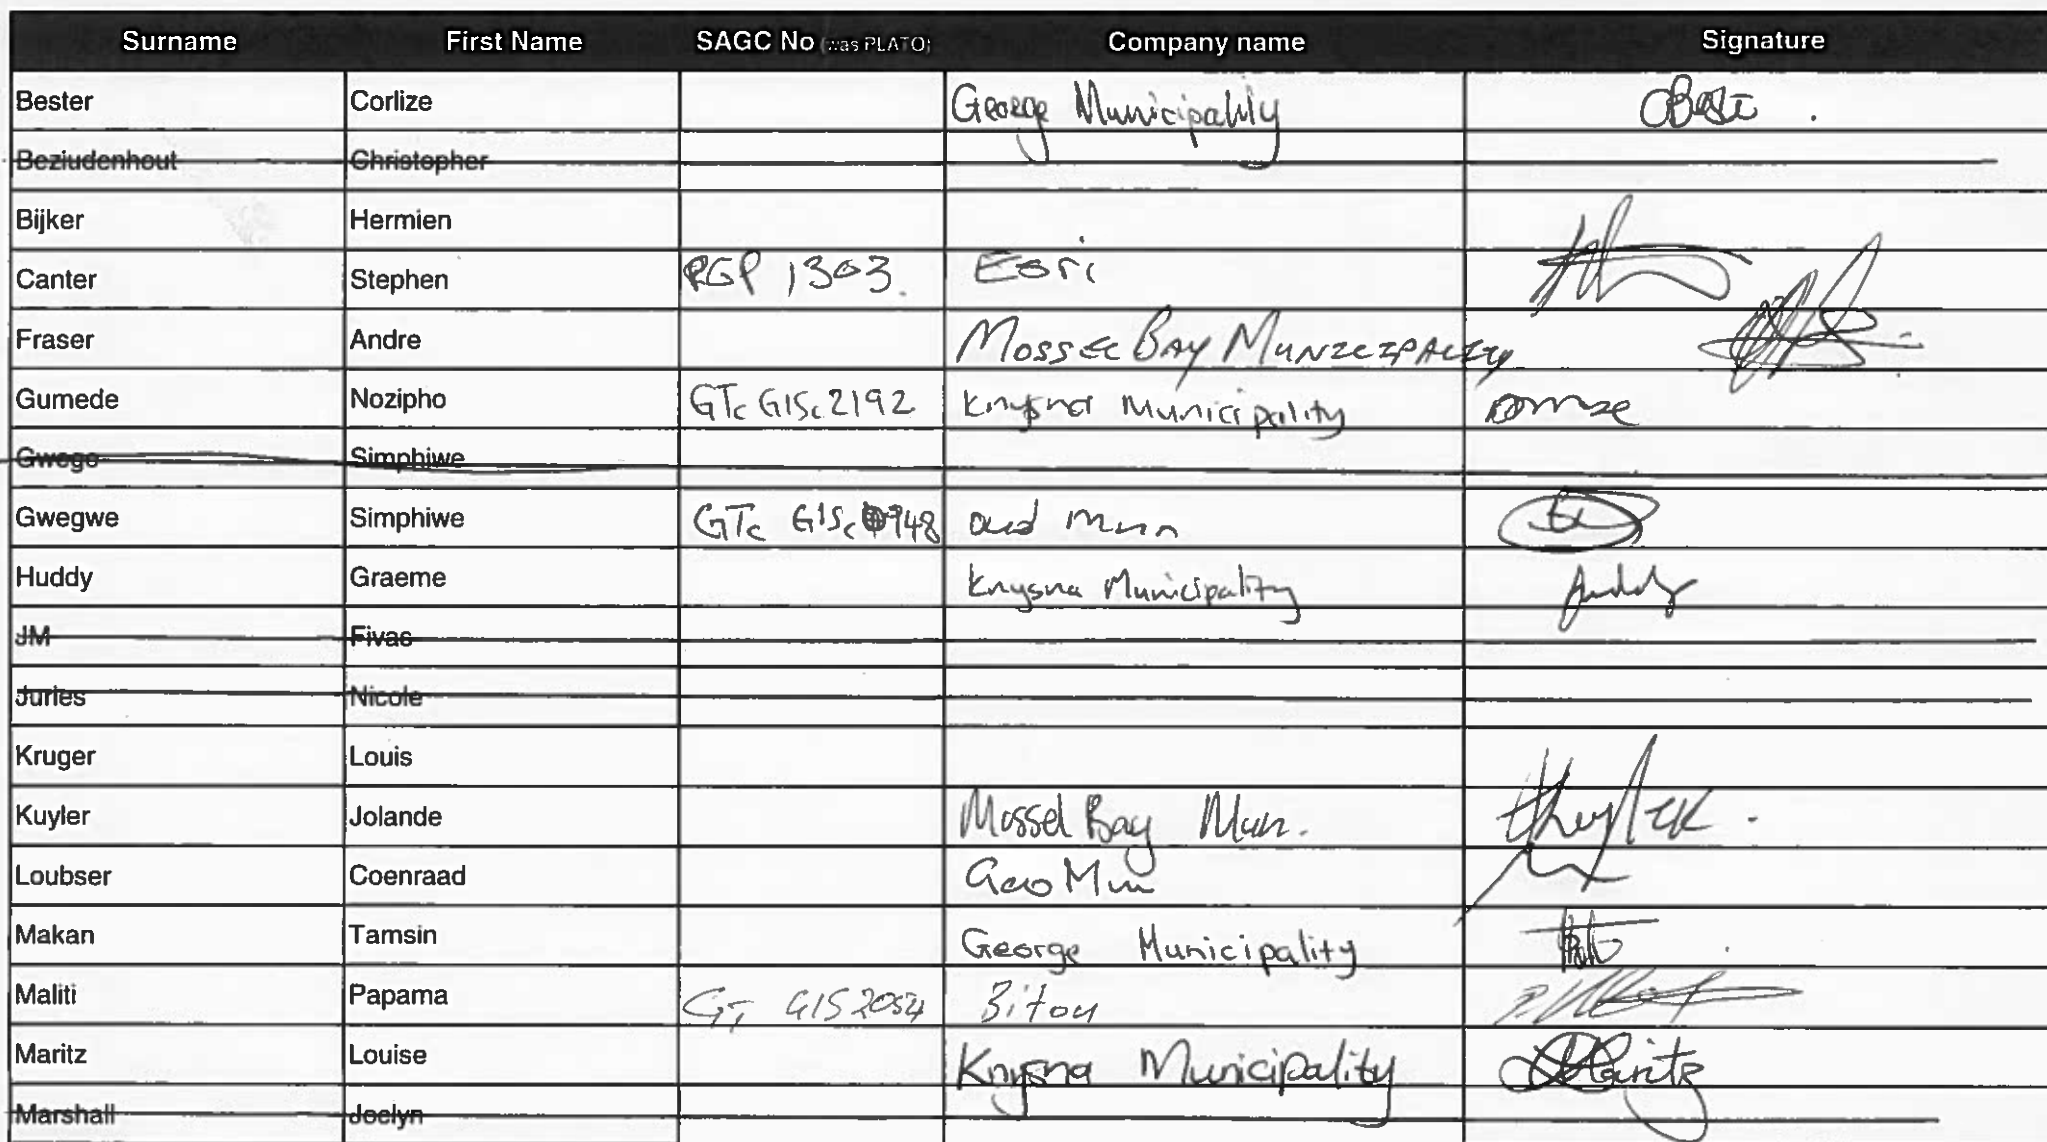 Surname First Name SAGC No (was PLATO) Company name Signature
Bester Corlize George Municipality
Beziudenhout Christopher
Bijker Hermien
Canter Stephen RGP 1303. Esri
Fraser Andre MOSSEL BAY MUNICIPALITY
Gumede Nozipho GTc GISc 2192 Knysna Municipality
Gwego Simphiwe
Gwegwe Simphiwe GTc GISc 0948 oud mun
Huddy Graeme Knysna Municipality Huddy
JM Fivas
Juries Nicole
Kruger Louis
Kuyler Jolande Mossel Bay Mun.
Loubser Coenraad Geo Mun
Makan Tamsin George Municipality
Maliti Papama GT GIS 2054 Bitou
Maritz Louise Knysna Municipality LMaritz
Marshall Joelyn